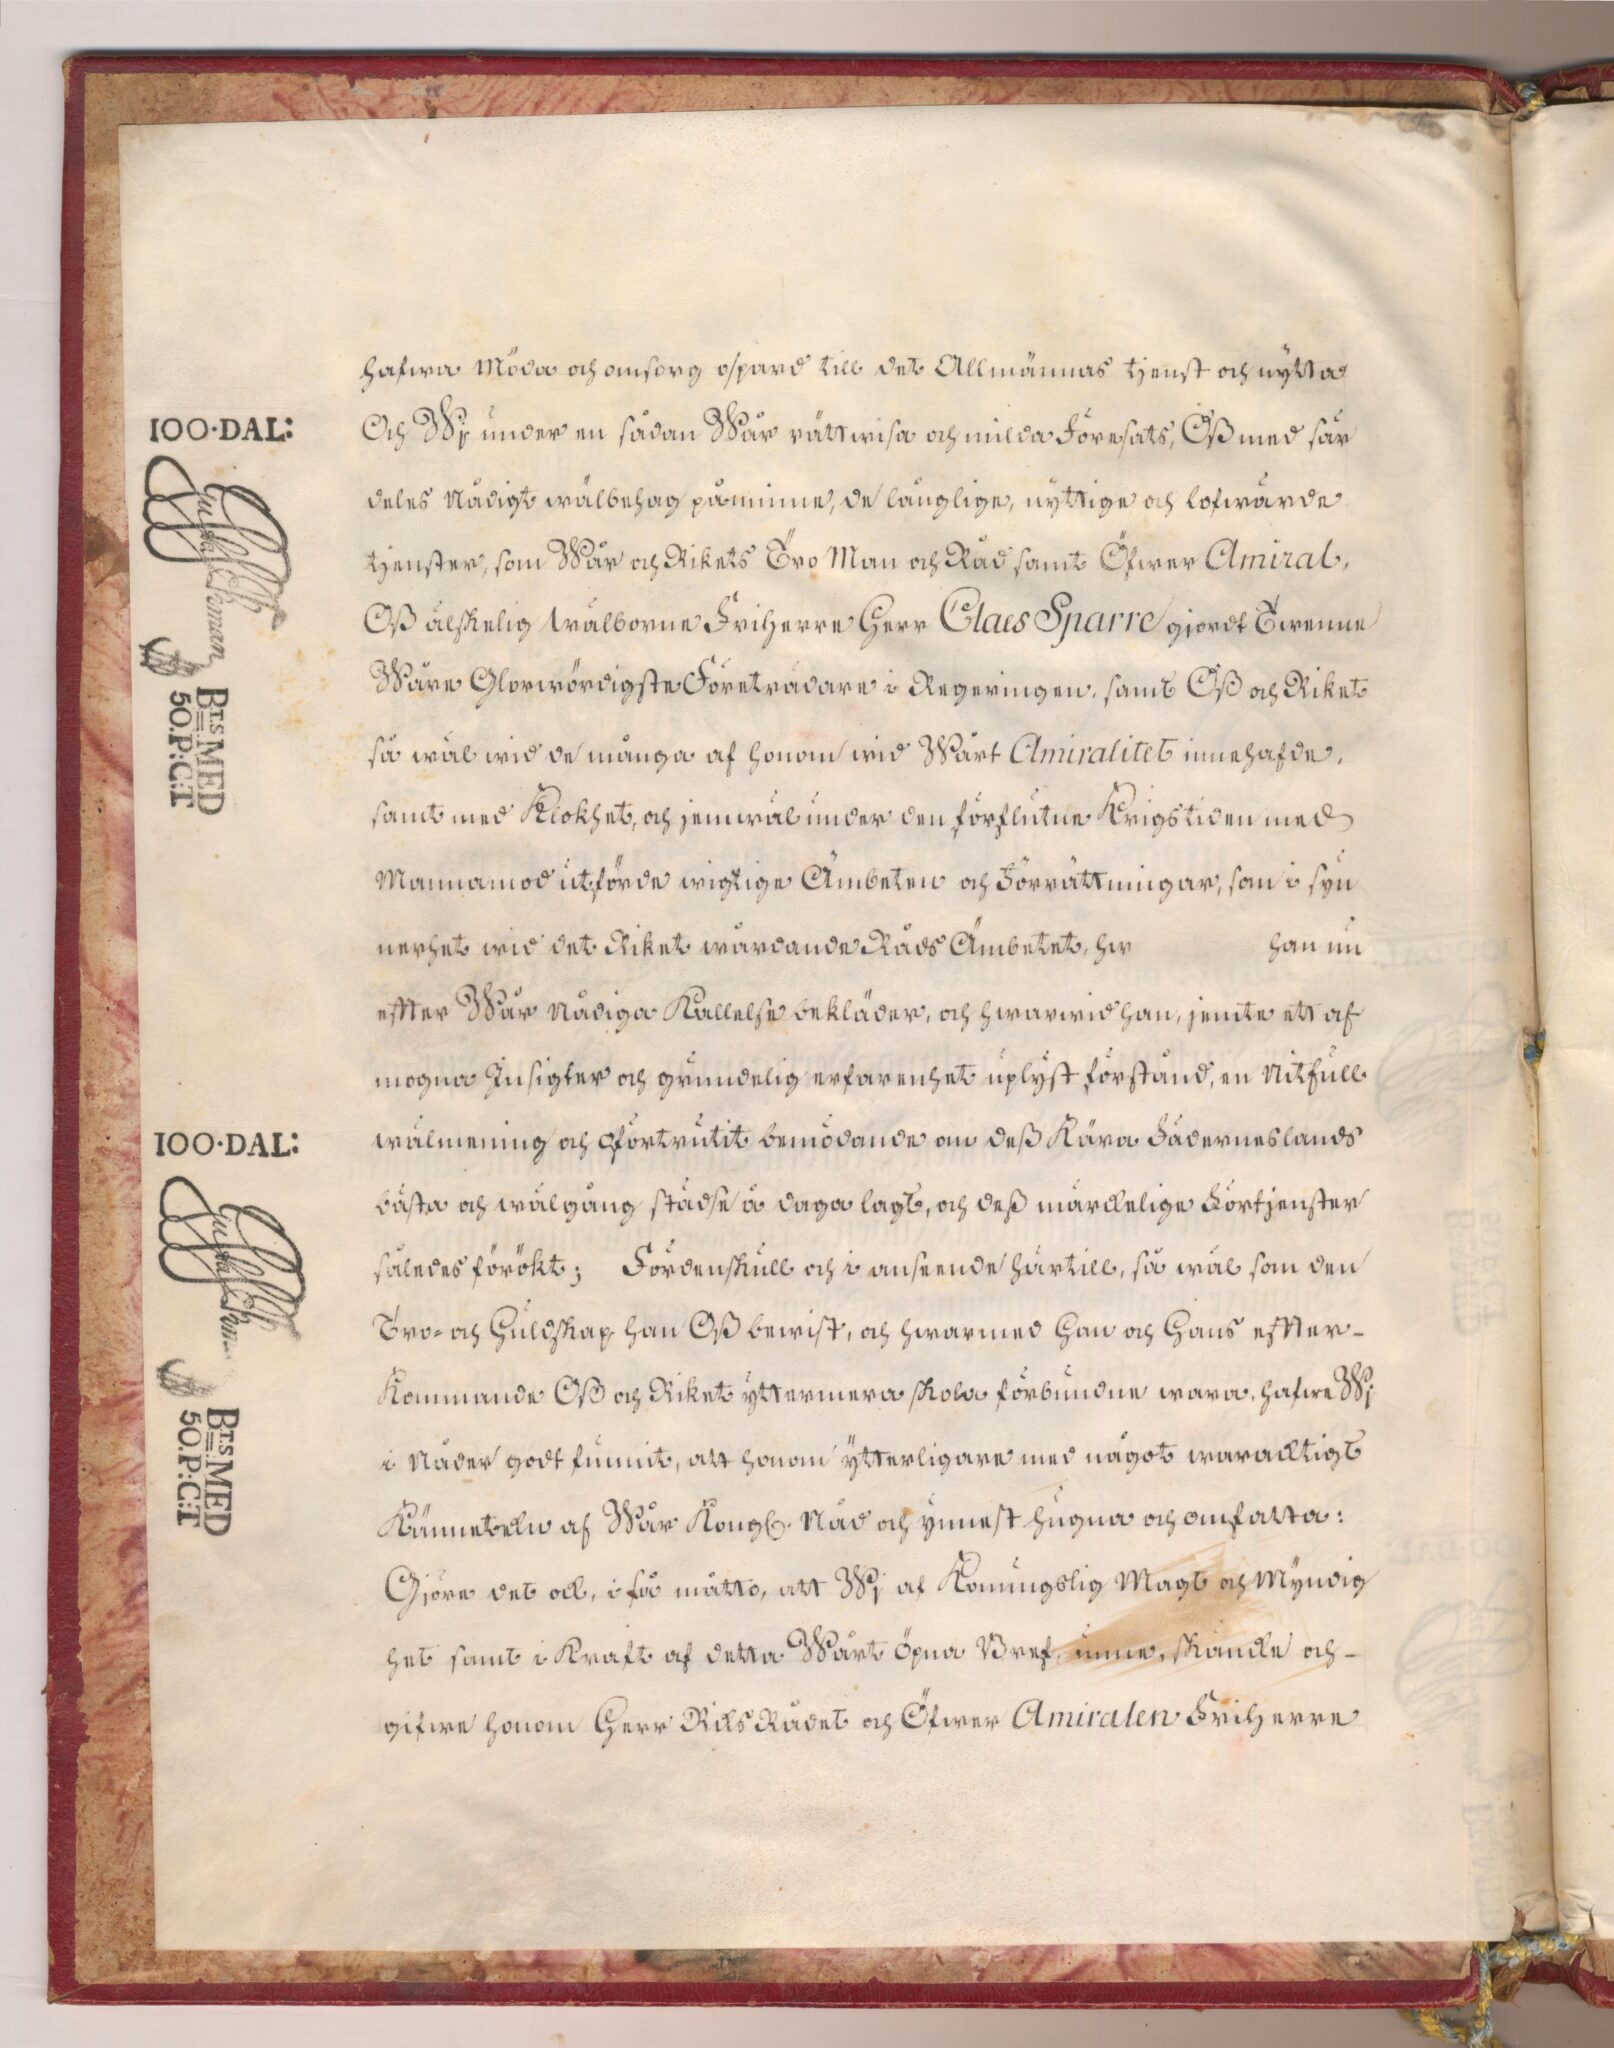 hafwa Möda och omsorg ospard till det Allmännas tjenst och nytta
Och Wi under en sådan Wår rättwisa och milda Föresats, Oß med sär
deles Nådigt wälbehag påminne, de långlige, nyttige och lofwärde
tjenster, som Wår och Rikets Tro Man och Råd samt Öfwer Amiral,
Oß älskelig wälborne Friherre Herr Claes Sparre gjordt Twenne
Wåre Glorwördigste Företrädare i Regeringen, samt Oß och Riket
så wäl wid de många af honom wid Wårt Amiralitet innehafde,
samt med Klokhet, och jemwäl under den förflutne Krigstiden med
Mannamod utförde wigtige Ämbeten och Förrättningar, som i syn
nerhet wid det Riket wårdande Råds Ämbetet, hw han nu
effter Wår Nådiga Kallelse bekläder, och hwarwid han, jemte ett af
mogna Insigter och grundelig erfarenhet uplyst förstånd, en Nitfull
wälmening och oförtrutit bemödande om deß Kära Fäderneslands
bästa och wälgång städse å daga lagt, och deß märckelige Förtjenster
således förökt; Fördenskull och i anseende härtill, så wäl som den
Tro- och Huldskap han Oß bewist, och hwarmed Han och Hans effter-
Kommande Oß och Riket yttermera skola förbundne wara, hafwe Wi
i Nåder godt funnit, att honom ytterligare med något waracktigt
Kännetekn af Wår Kongl. Nåd och ynnest hugna och omfatta:
Gjöre det ock, i så måtto, att Wi af Konungslig Magt och Myndig
het samt i Kraft af detta Wårt Öpna Bref, unne, skäncke och-
gifwe honom Herr RiksRådet och Öfwer Amiralen Friherre
100·DAL:
BTS MED
50.P:C:T
100·DAL:
BTS MED
50.P:C:T